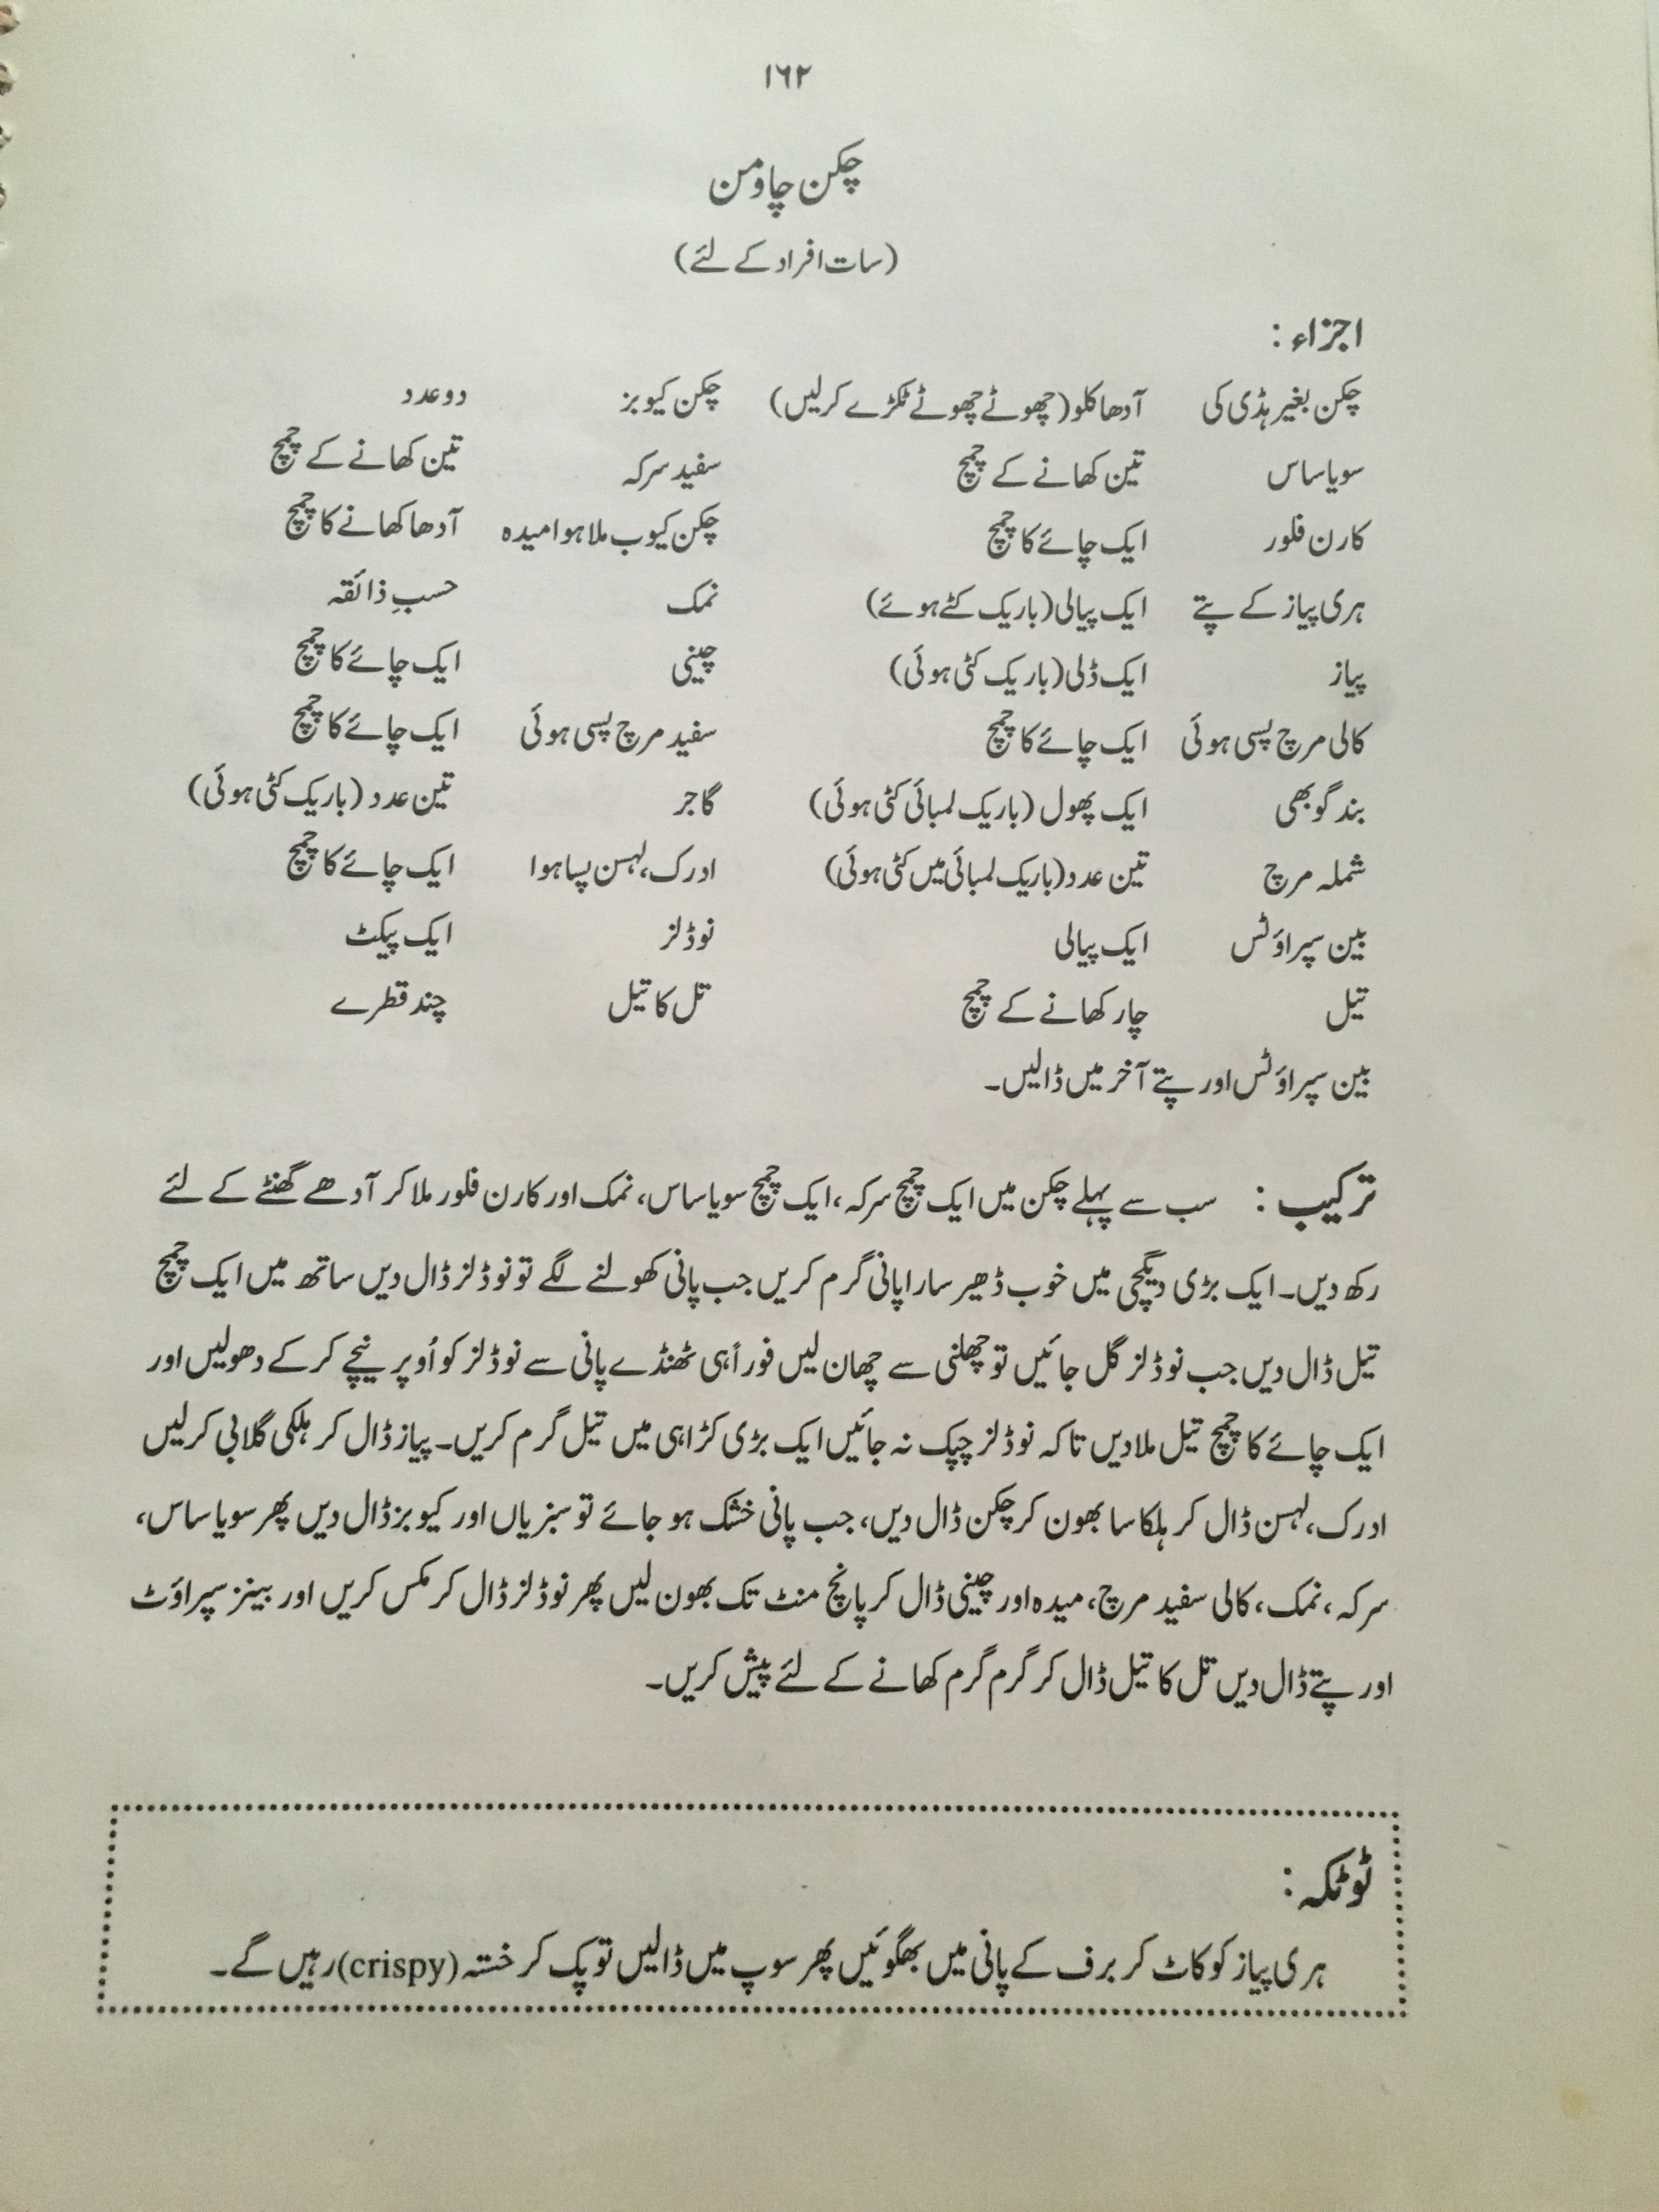 ۱۶۲
چکن چاومن
(سات افراد کے لئے)
اجزاء :
چکن بغیر ہڈی کی آدھا کلو (چھوٹے چھوٹے ٹکڑے کرلیں) چکن کیوبز دو عدد
سویا ساس تین کھانے کے چمچ سفید سرکہ تین کھانے کے چمچ
کارن فلور ایک چائے کا چمچ چکن کیوب ملا ہوا میدہ آدھا کھانے کا چمچ
ہری پیاز کے پتے ایک پیالی (باریک کٹے ہوئے) نمک حسبِ ذائقہ
پیاز ایک ڈلی (باریک کٹی ہوئی) چینی ایک چائے کا چمچ
کالی مرچ پسی ہوئی ایک چائے کا چمچ سفید مرچ پسی ہوئی ایک چائے کا چمچ
بند گوبھی ایک پھول (باریک لمبائی کٹی ہوئی) گاجر تین عدد (باریک کٹی ہوئی)
شملہ مرچ تین عدد (باریک لمبائی میں کٹی ہوئی) ادرک، لہسن پسا ہوا ایک چائے کا چمچ
بین سپراؤٹس ایک پیالی نوڈلز ایک پیکٹ
تیل چار کھانے کے چمچ تل کا تیل چند قطرے
بین سپراؤٹس اور پتے آخر میں ڈالیں۔
ترکیب : سب سے پہلے چکن میں ایک چمچ سرکہ، ایک چمچ سویا ساس، نمک اور کارن فلور ملا کر آدھے گھنٹے کے لئے
رکھ دیں۔ ایک بڑی دیگچی میں خوب ڈھیر سارا پانی گرم کریں جب پانی کھولنے لگے تو نوڈلز ڈال دیں ساتھ میں ایک چمچ
تیل ڈال دیں جب نوڈلز گل جائیں تو چھلنی سے چھان لیں فوراً ہی ٹھنڈے پانی سے نوڈلز کو اُوپر نیچے کر کے دھولیں اور
ایک چائے کا چمچ تیل ملا دیں تا کہ نوڈلز چپک نہ جائیں ایک بڑی کڑاہی میں تیل گرم کریں۔ پیاز ڈال کر ہلکی گلابی کر لیں
ادرک، لہسن ڈال کر ہلکا سا بھون کر چکن ڈال دیں، جب پانی خشک ہو جائے تو سبزیاں اور کیوبز ڈال دیں پھر سویا ساس،
سرکہ، نمک، کالی سفید مرچ، میدہ اور چینی ڈال کر پانچ منٹ تک بھون لیں پھر نوڈلز ڈال کر مکس کریں اور بینز سپراؤٹ
اور پتے ڈال دیں تل کا تیل ڈال کر گرم گرم کھانے کے لئے پیش کریں۔
ٹوٹکہ :
ہری پیاز کو کاٹ کر برف کے پانی میں بھگوئیں پھر سوپ میں ڈالیں تو پک کر خستہ (crispy) رہیں گے۔